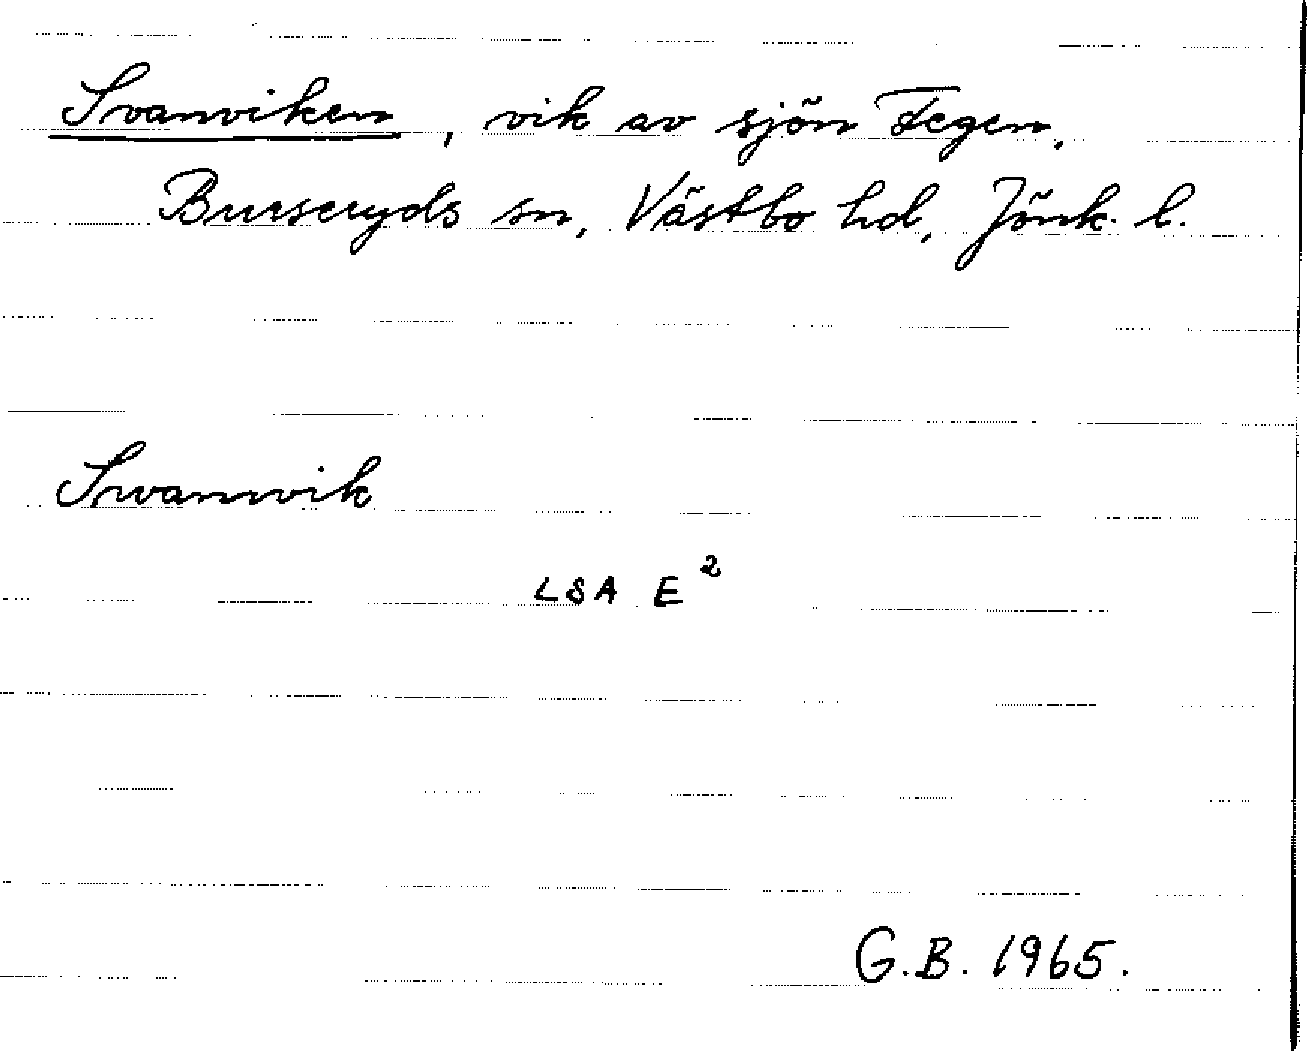 Svanviken, vik av sjön Fegen,
Burseryds sn, Västbo hd, Jönk. l.
Swanwik
LSA E²
G.B. 1965.